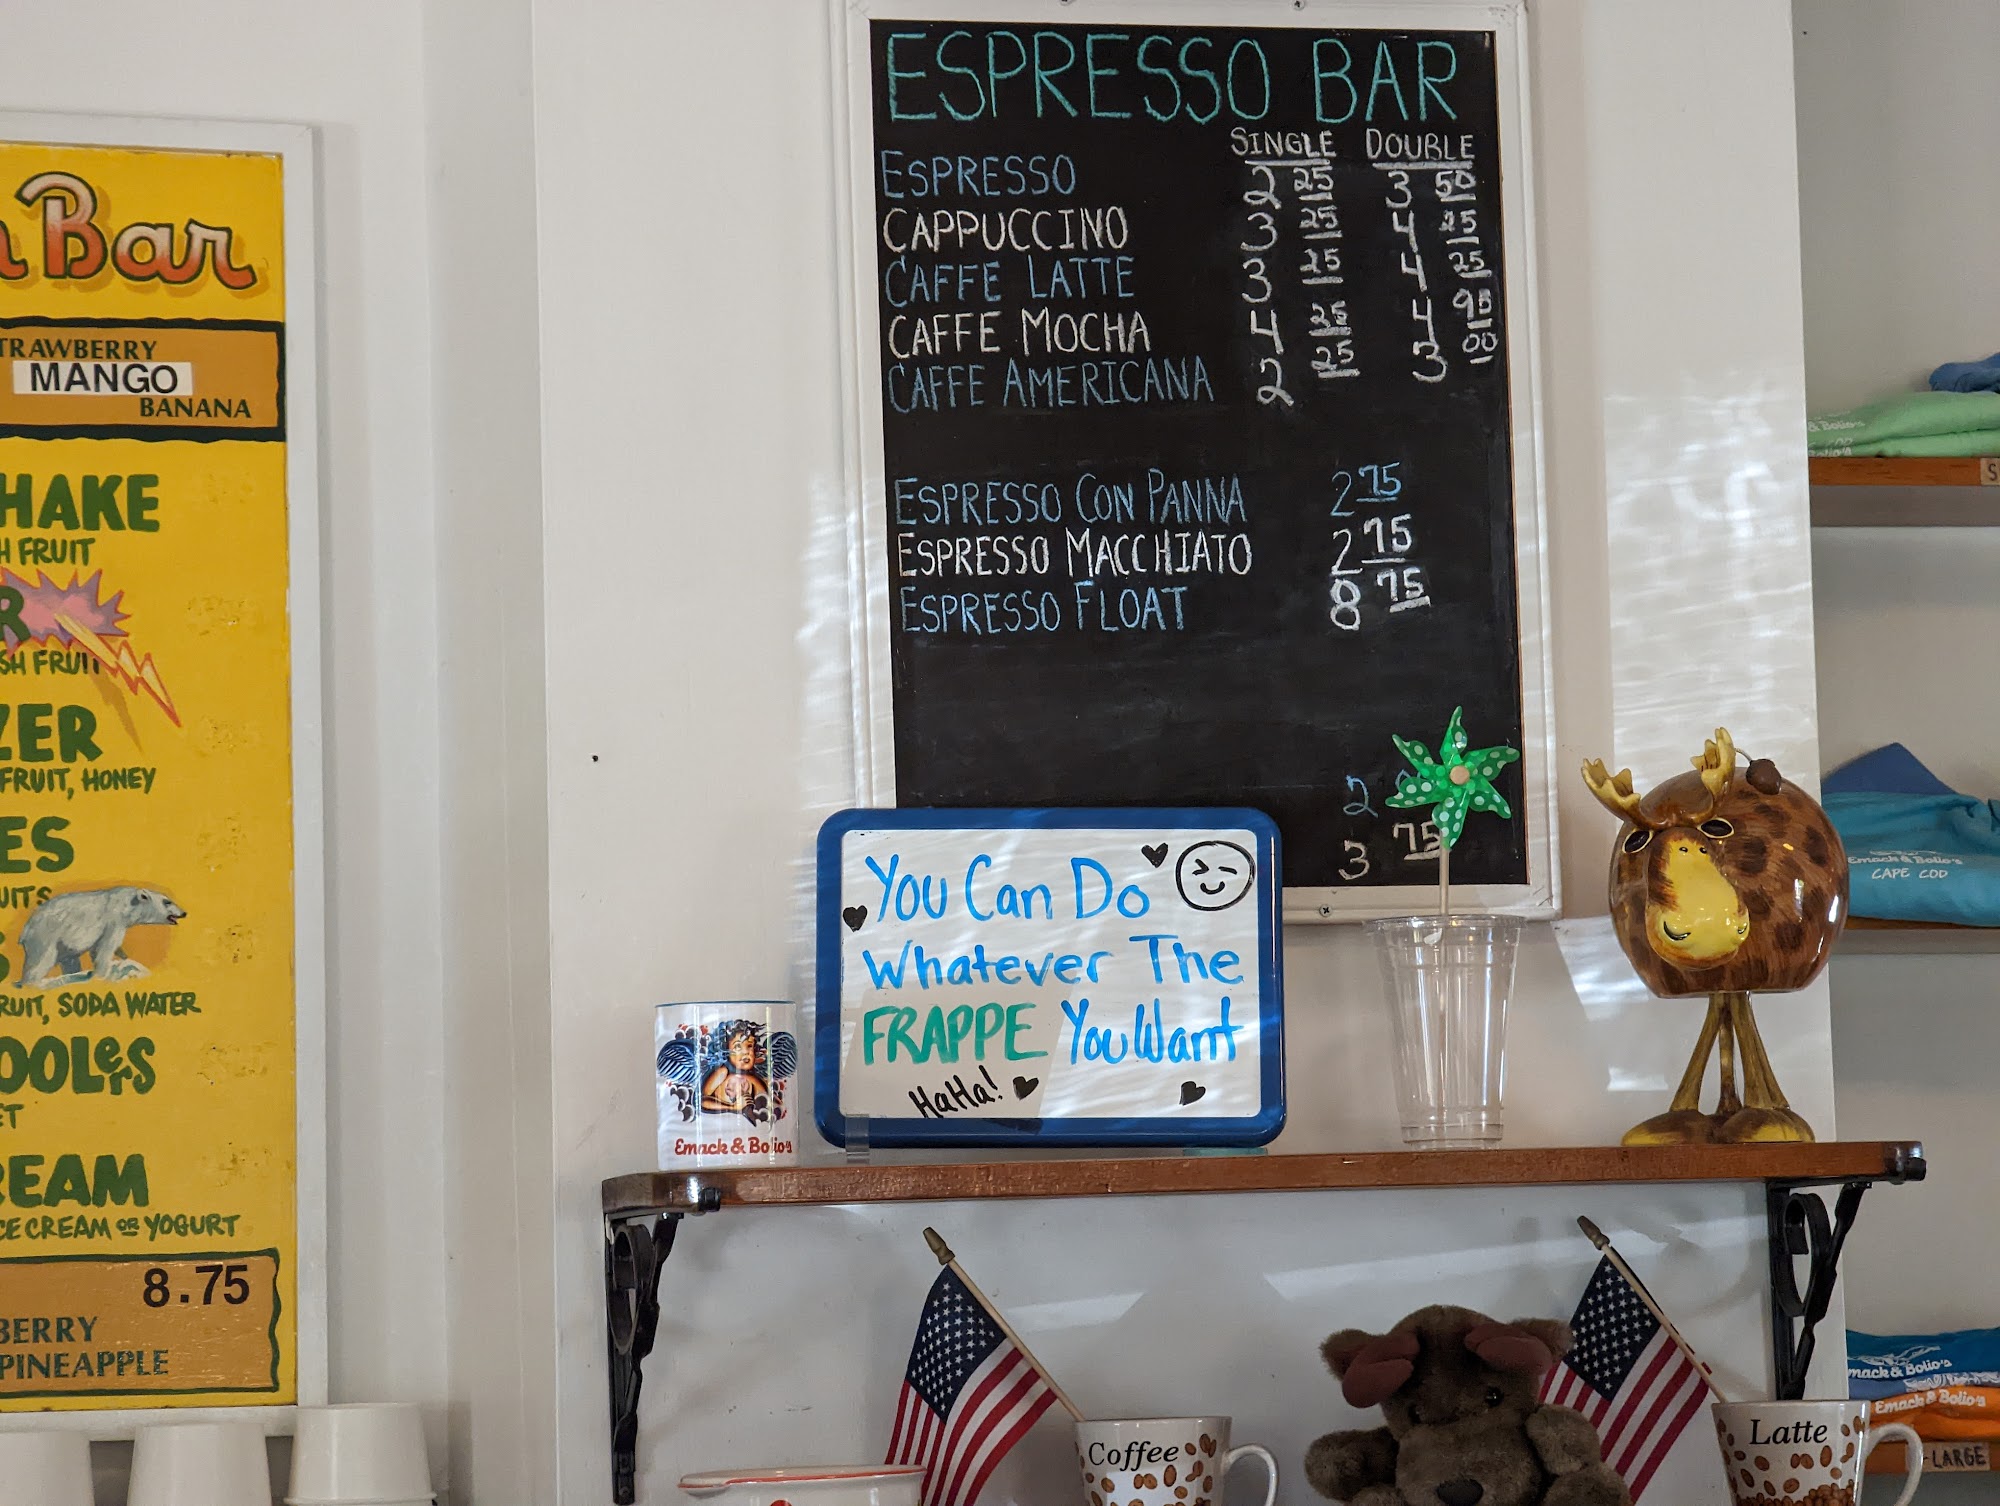 Bar
TRAWBERRY
MANGO
BANANA
HAKE
H FRUIT
R
SH FRUIT
ZER
FRUIT, HONEY
ES
UITS
S
RUIT, SODA WATER
OOLERS
ET
REAM
CE CREAM OR YOGURT
8.75
BERRY
PINEAPPLE
ESPRESSO BAR
SINGLE DOUBLE
ESPRESSO 2 25 3 50
CAPPUCCINO 3 25 4 25
CAFFE LATTE 3 25 4 25
CAFFE MOCHA 4 25 4 95
CAFFE AMERICANA 2 25 3 00
ESPRESSO CON PANNA 2 75
ESPRESSO MACCHIATO 2 75
ESPRESSO FLOAT 8 75
2
3 75
You Can Do
Whatever The
FRAPPE You Want
HaHa!
Emack & Bolio's
Coffee
Latte
& Bolio's
COD
Bolio's
S
Emack & Bolio's
CAPE COD
mack & Bolio's
Emack & Bolio's
-LARGE